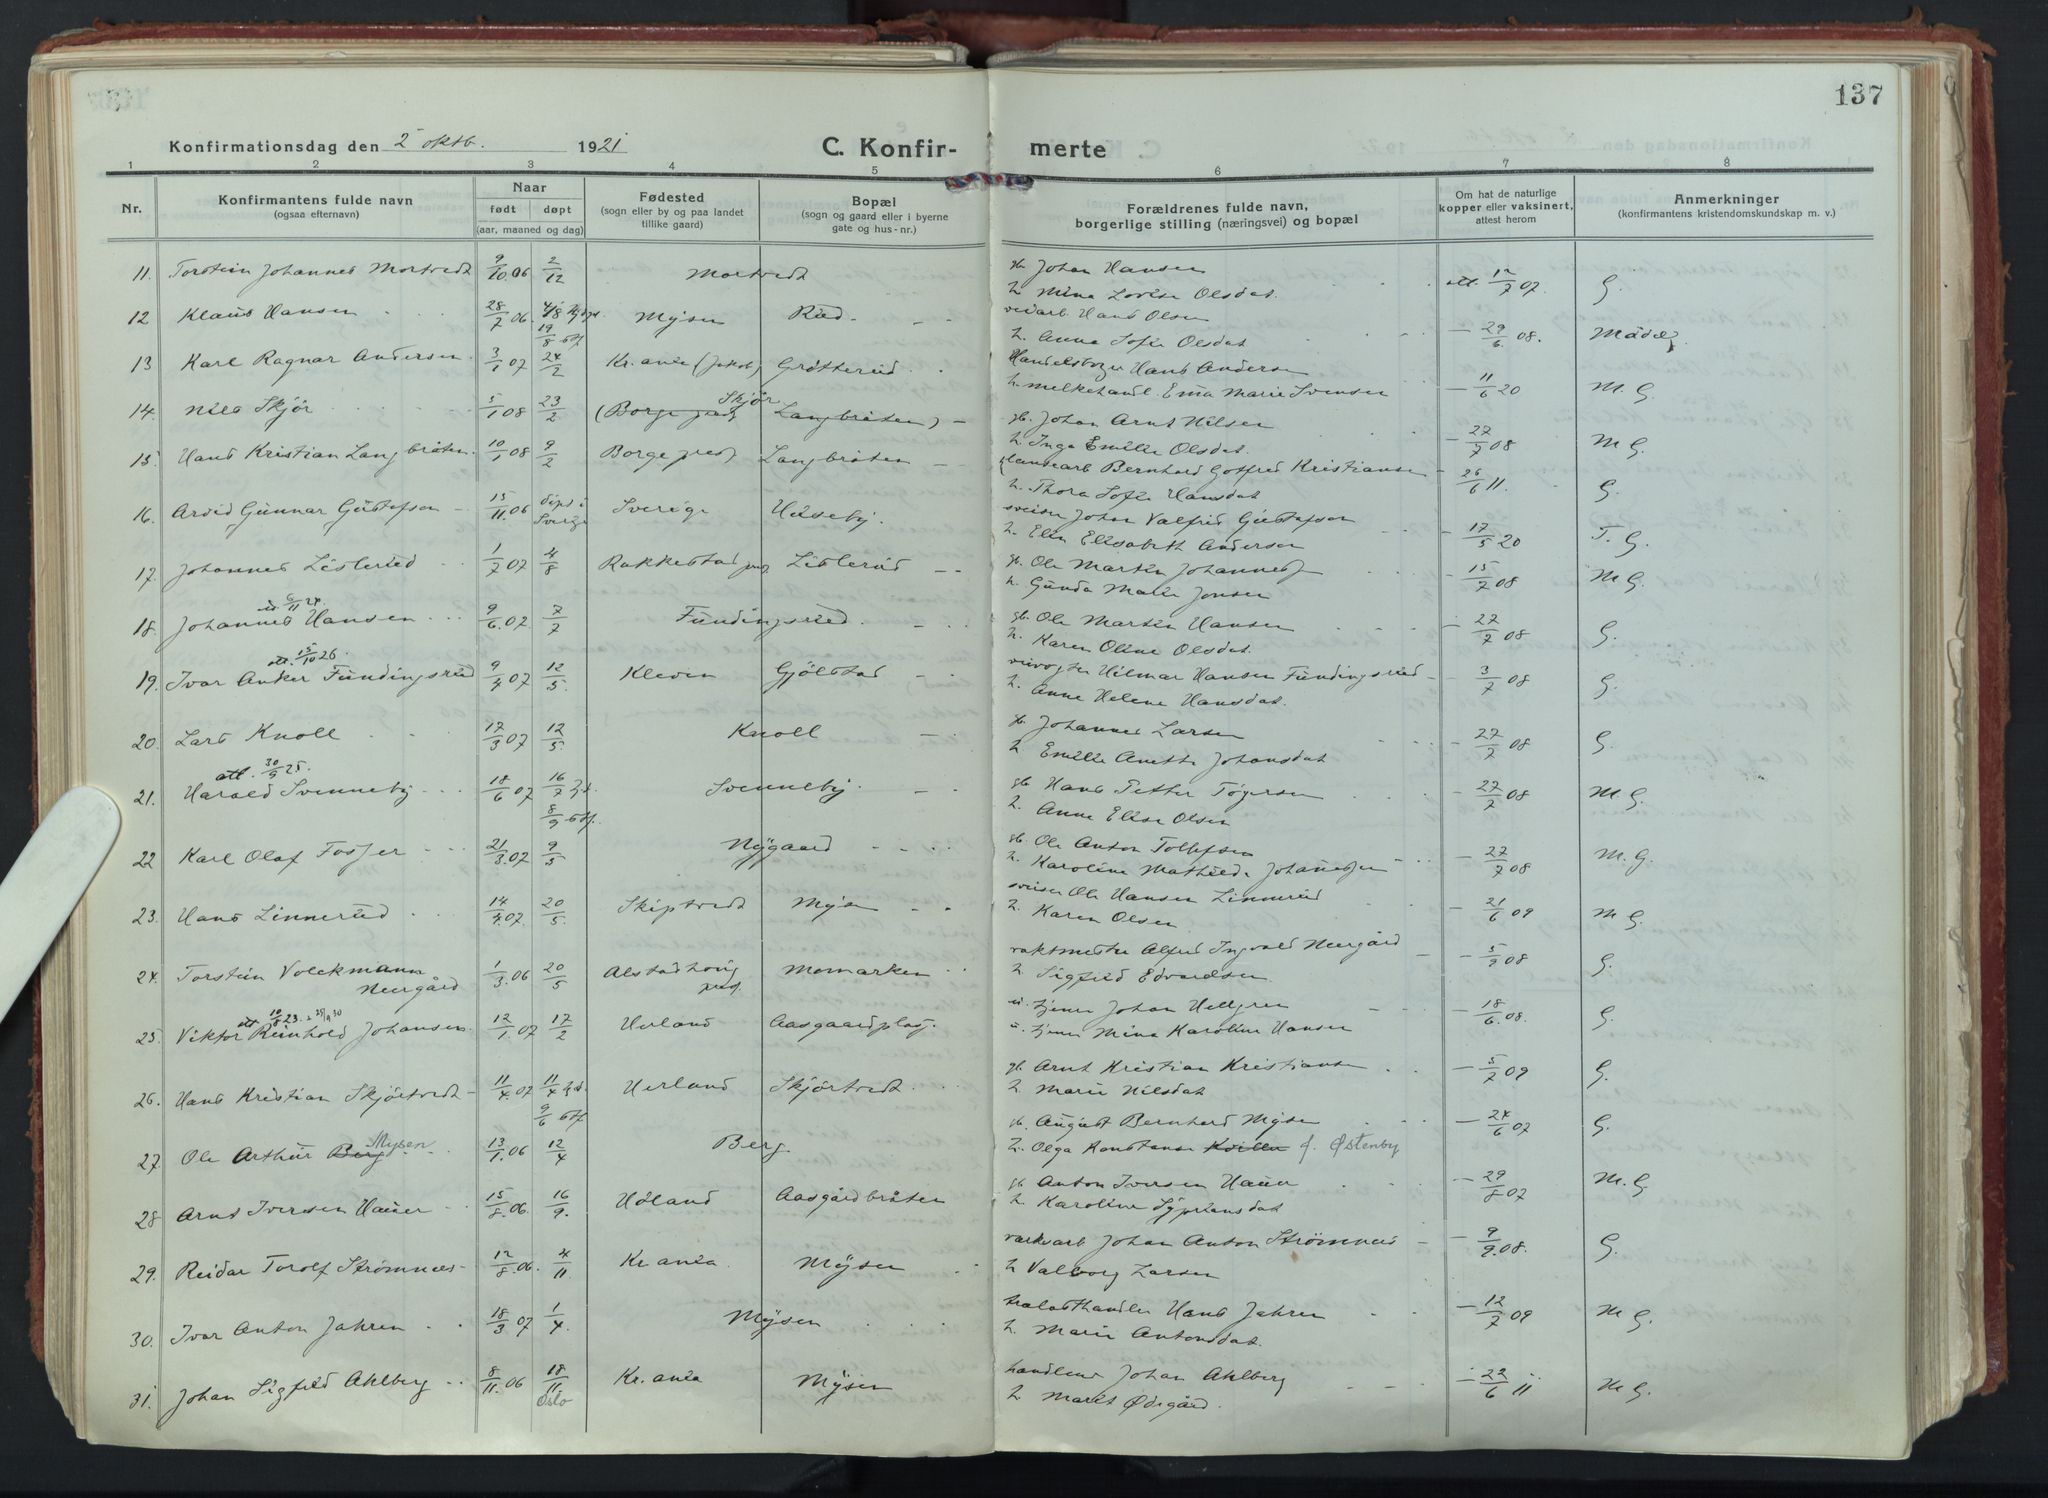 137
Konfirmationsdag den 2 oktb. 1921 C. Konfir- merte
1 2 3 4 5 6 7 8
Nr. Konfirmantens fulde navn (ogsaa efternavn) Naar født døpt (aar, maaned og dag) Fødested (sogn eller by og paa landet tillike gaard) Bopæl (sogn og gaard eller i byerne gate og hus-nr.) Forældrenes fulde navn, borgerlige stilling (næringsvei) og bopæl Om hat de naturlige kopper eller vaksinert, attest herom Anmerkninger (konfirmantens kristendomskundskap m. v.)
11. Torstein Johannes Mortvedt 9/10 06 2/12 Mortvedt gb. Johan Hansen
h. Mina Lovise Olsdat. att. 12/7 07. G.
12 Klaus Hansen 28/7 06. 4/8 Hjdp. Mysen Rud veiarb. Hans Olsen
19/8 stf. h. Anna Sofie Olsdat. 29/6 08. Mådelg
13 Karl Ragnar Andersen 3/1 07 24/2 Kr.ania (Jakob) Grøtterud Handelsbogn Hans Andersen
h. melkehandl. Ema Marie Svensen 11/6 20 M. G.
14. Nils Skjør 5/1 08 23/2 (Borge præst Skjør Langbråten) gb. Johan Arnt Nilsen
h. Inga Emilie Olsdat. 27/7 08 M G.
15 Hans Kristian Langbråten 10/1 08 9/2 Borge prest Langbråten Bernhard Gotfred Kristiansen
h. Thora Sofie Hansdat 26/6 11. G.
16. Arvid Gunnar Gustafson 15/11 06 døpt i Sverige Sverige Huseby. sveiser Johan Valfrid Gustafson
h. Elin Elisabeth Andersen 17/5 20 T. G.
17. Johannes Listerud 1/7 07 4/8 Rakkestad Listerud gb. Ole Martin Johannes
h. Gunda Marie Jonsen 15/7 08 M G.
18. Johannes Hansen 9/6 07. 7/7 Fundingsrud. gb. Ole Martin Hansen
h. Karen Oline Olsdat. 27/7 08 G.
att. 15/10 26.
19. Ivar Anker Fundingsrud 9/4 07 12/5. Kleven Gjølstad veivogter Hilmar Hansen Fundingsrud
h. Anne Helene Hansdat. 3/7 08 G.
20. Lars Knoll 17/3 07 12/5. Knoll gb. Johannes Larsen
h. Emilie Anette Johansdat 27/7 08 G.
att. 30/9 25.
21. Harald Svenneby 18/6 07 16/7 hd. Svenneby. gb. Hans Petter Togersen
8/9 stf. h. Anne Elise Olsen 27/7 08 M. G.
22 Karl Olaf Fosser 21/3 07 9/5 Nygaard gb. Ole Anton Tollefsen
h. Karoline Mathilde Johannesen 27/7 08 M. G.
23. Hans Linnerud 14/4 07 20/5. Skiptvedt Mysen sveiser Ole Hansen Linnerud
h. Karen Olsen 21/6 09 M G.
24. Torstein Volckmann Neergård 1/3 06 20/5 Alstadhoug prest. Momarken vaktmester Alfred Ingvald Neergård
h. Sigfrid Edvardsen 5/9 08 G.
att. 10/8 23.
25. Viktor Reinhold Johansen 12/1 07 17/2 Herland Aasgaardplas. u. tjener Johan Hellgren
u. tjener Mina Karoline Hansen 18/6 08. G.
26. Hans Kristian Skjørtvedt 11/4 07 11/4 hd. Herland Skjørtvedt. gb. Arnt Kristian Kristiansen
9/6 stf. h. Marie Nilsdat 5/7 09 G.
27 Ole Arthur Berg Mysen 13/1 06 12/4 Berg. gb. August Bernhard Mysen
h. Olga Konstanse f. Østenby 24/6 07 G.
28 Arnt Iversen Hauer 15/8 06. 16/9. Høland Aasgårdbråten gb. Anton Iversen Hauer
h. Karoline Syprensdat 29/8 07 M. G
29. Reidar Torolf Strømnes 12/8 06. 4/11 Kr.ania Mysen verkarb Johan Anton Strømnes
h. Valborg Larsen 9/9 08. G.
30. Ivar Anton Jahren 18/3 07 1/4. Mysen trælasthandler Hans Jahren
h. Marie Antonsdat 12/7 09 M G.
31. Johan Sigfrid Ahlberg 8/11 06 18/11 Oslo Kr.ania Mysen handlende Johan Ahlberg
h. Marit Ødegård. 22/6 11 M G.